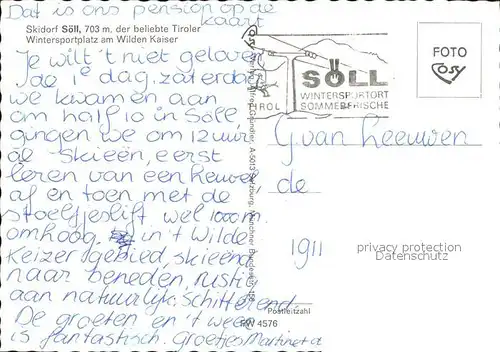 Dat is ons pension op de kaart
Skidorf Söll, 703 m, der beliebte Tiroler
Wintersportplatz am Wilden Kaiser
Je wilt 't niet geloven
de 1e dag, zaterdag
we kwamen aan
om half 10 in Söll
gingen we om 12 uur
al skieën, eerst
leren van een heuvel
af en toen met de
stoeltjeslift wel 1000 m.
omhoog in 't Wilde
Keizer gebied, skieend
naar beneden, rustig
aan natuurlijk. Schitterend.
De groeten en 't weer
is fantastisch. Groetjes Martinet
SÖLL
WINTERSPORTORT
SOMMERFRISCHE
TIROL
FOTO
Cosy
G. van Leeuwen
de
1911
privacy protection
Datenschutz
Postleitzahl
RW 4576